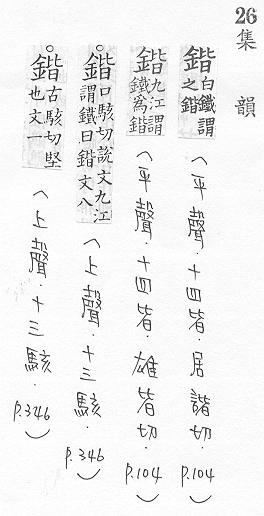 26 集 韻
鍇 白鐵謂之鍇 (平聲．十四皆．居諧切．P.104)
鍇 九江謂鐵為鍇 (平聲．十四皆．雄皆切．P.104)
○鍇 口駭切說文九江謂鐵曰鍇文八 (上聲．十三駭．P.346)
○鍇 古駭切堅也文一 (上聲．十三駭．P.346)